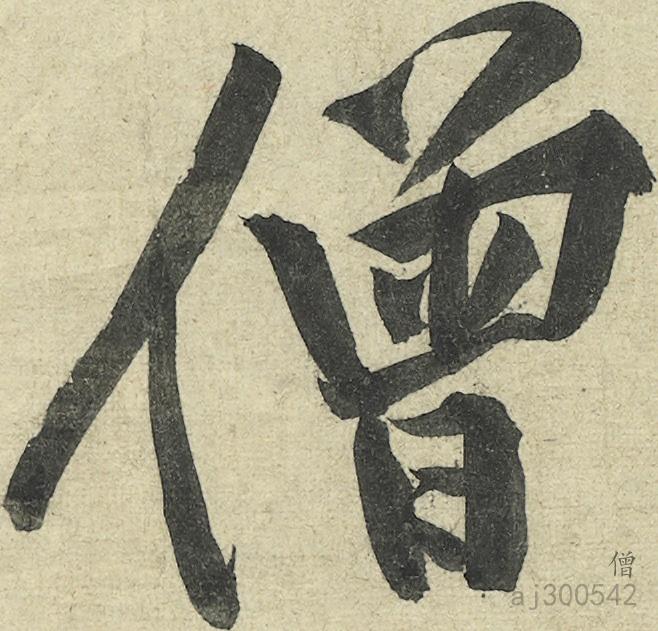 僧
僧
aj300542